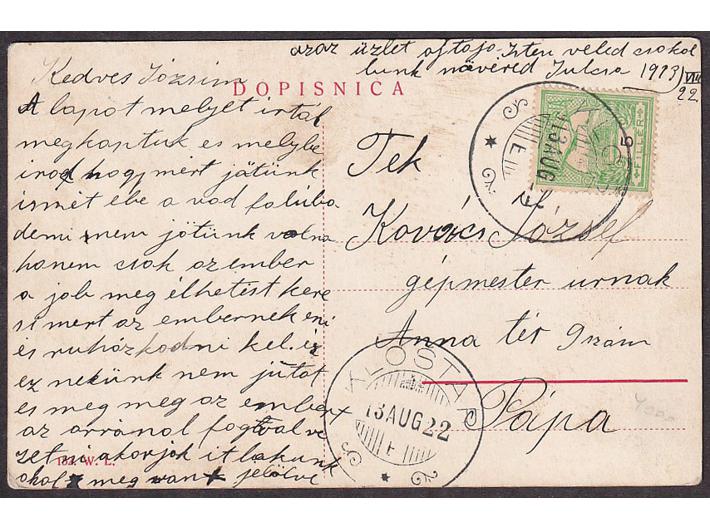 azaz üzlet ajtaja. Isten veled csokol
lunk növéred Julcsa 1913 VIII
22.
DOPISNICA
Kedves Józsim
A lapot melyet irtál
megkaptuk es melybe
irod hogy mért jötünk
ismét ebe a vad faluba
demi nem jötünk volna
hanem csak az ember
a job meg élhetést kere
si mert az embernek eni
és ruházkodni kel. ez
ez nekünk nem jutot
es meg meg az embert
az orránol fogtval ve
zet mi akorjok it lakunk
ahol meg van jelölve
Tek
Kovács József
gépmester urnak
Anna tér 9 szám
Pápa
KLOSTAR
13 AUG 22
E
13 AUG
E
5
FILLÉR
W. L.